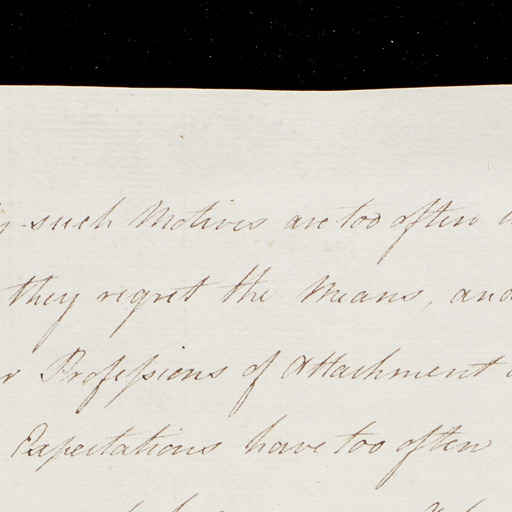 such Motives are too often
they regret the Means, and
Professions of Attachment
Expectations have too often